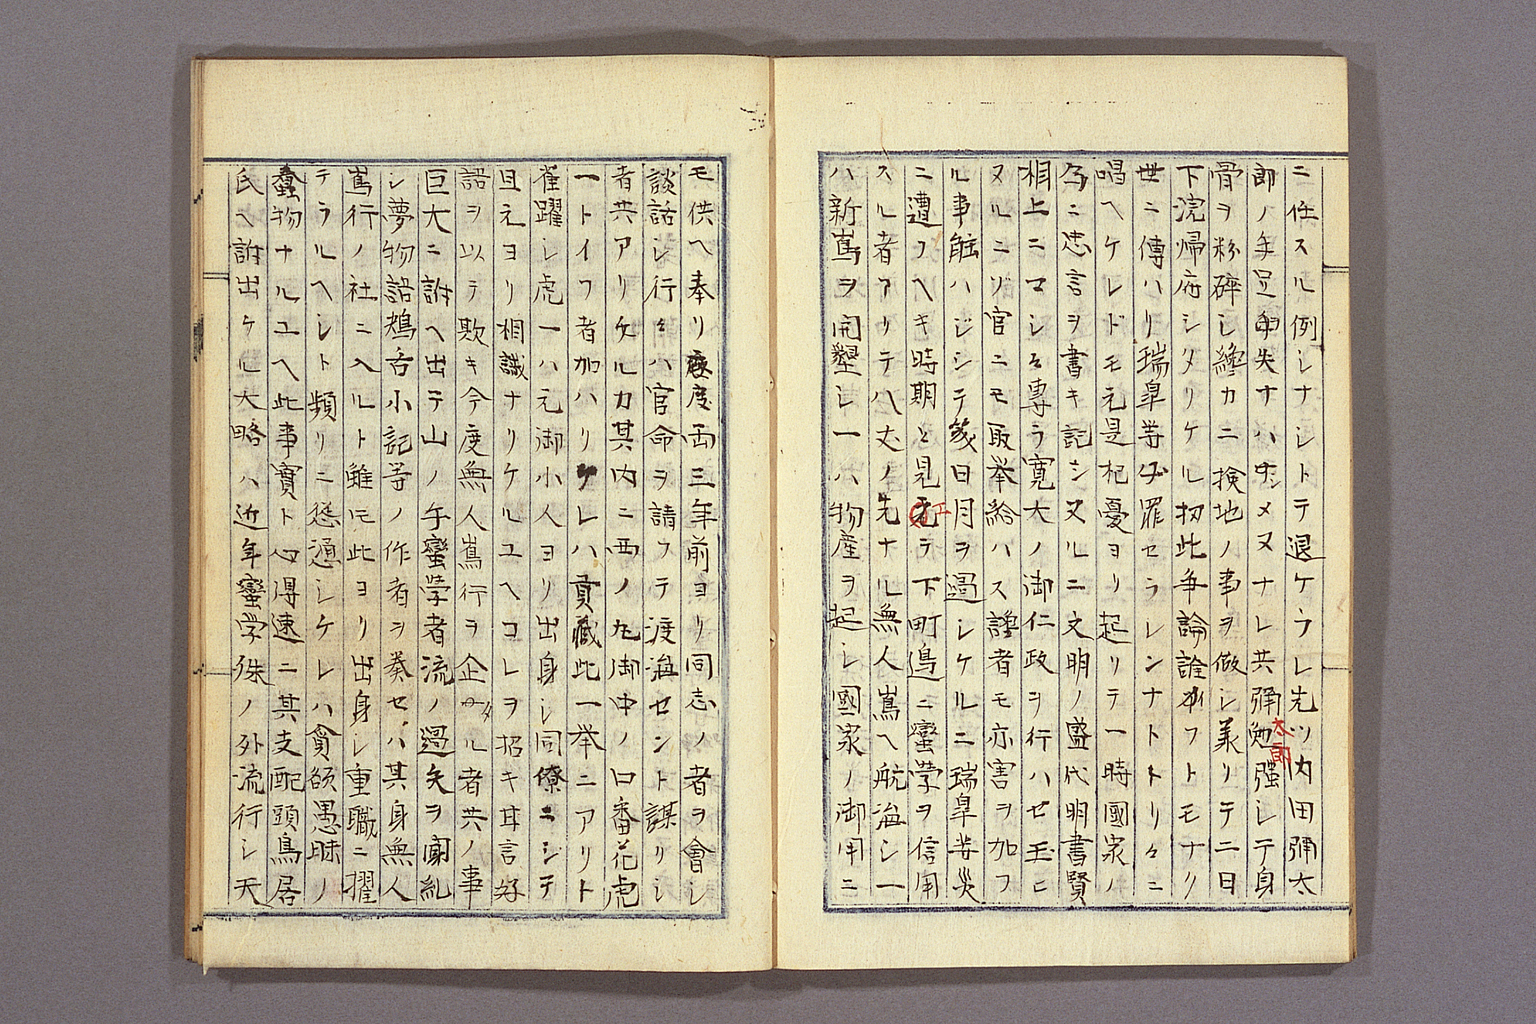 ニ任スル例シナシトテ退ケラレ先ツ内田彌太
郎ノ手足ヲ失ナハシメヌナレ共彌太郎勉強シテ身
骨ヲ粉碎シ纔カニ検地ノ事ヲ做シ業リテ二日
下浣帰府シタリケル扨此争論詮ナフトモナク
世ニ傳ハリ瑞皐等必罪セラレンナトトリ々ニ
唱ヘケレドモ元是杞憂ヨリ起リテ一時國家ノ
為ニ忠言ヲ書キ記シヌルニ文明ノ盛代明書賢
相上ニマシ々専ラ寛大ノ御仁政ヲ行ハセ玉ヒ
ヌルニソ官ニモ取挙給ハス讒者モ亦害ヲ加フ
ル事能ハシシテ筊日月ヲ過シケルニ瑞皐等災
ニ遭フヘキ時期ト見テ下町邉ニ蠻学ヲ信用
スル者アリテ八丈ノ先ナル無人嶌ヘ航海シ一
ハ新嶌ヲ開墾シ一ハ物産ヲ起シ國家ノ御用ニ
モ供ヘ奉リ度両三年前ヨリ同志ノ者ヲ會シ
談話シ行々ハ官命ヲ請フテ渡海セント謀リシ
者共アリケルカ其内ニ西ノ丸御中ノ口番花虎
一トイフ者加ハリケレハ貢蔵此一挙ニアリト
雀躍シ虎一ハ元御小人ヨリ出身シ同僚ニシテ
且元ヨリ相識ナリケルユヘコレヲ招キ耳言好
語ヲ以テ欺キ今度無人嶌行ヲ企タル者共ノ事
巨大ニ訴ヘ出テ山ノ手蠻学者流ノ過失ヲ閫糺
シ夢物語鴂舌小記等ノ作者ヲ発セハ其身無人
嶌行ノ社ニ入ルト雖モ此ヨリ出身シ重職ニ擢
テラルヘシト頻リニ慫慂シケレハ貪欲愚昧ノ
蠢物ナルユヘ此事實ト心得速ニ其支配頭鳥居
氏ヘ訴出ケル大略ハ近年蠻学殊ノ外流行シ天